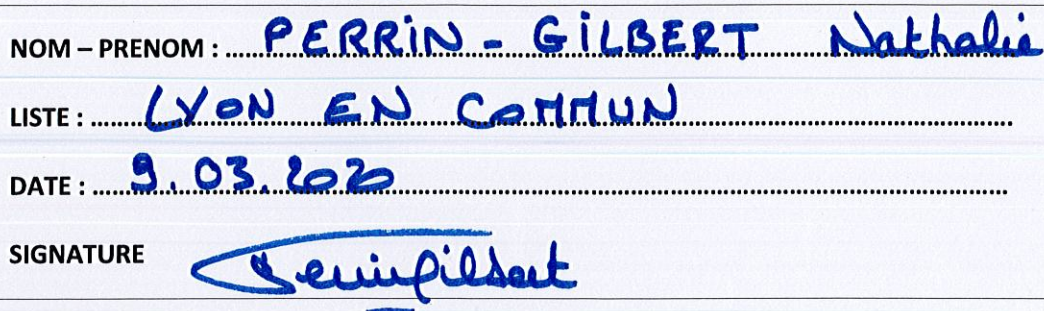 NOM – PRENOM : PERRIN - GILBERT Nathalie
LISTE : LYON EN COMMUN
DATE : 9.03.2020
SIGNATURE Perringilbert